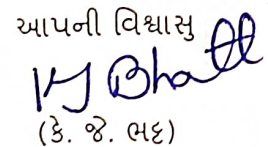 આપની વિશ્વાસુ
KJ Bhatt
(કે. જે. ભટ્ટ)